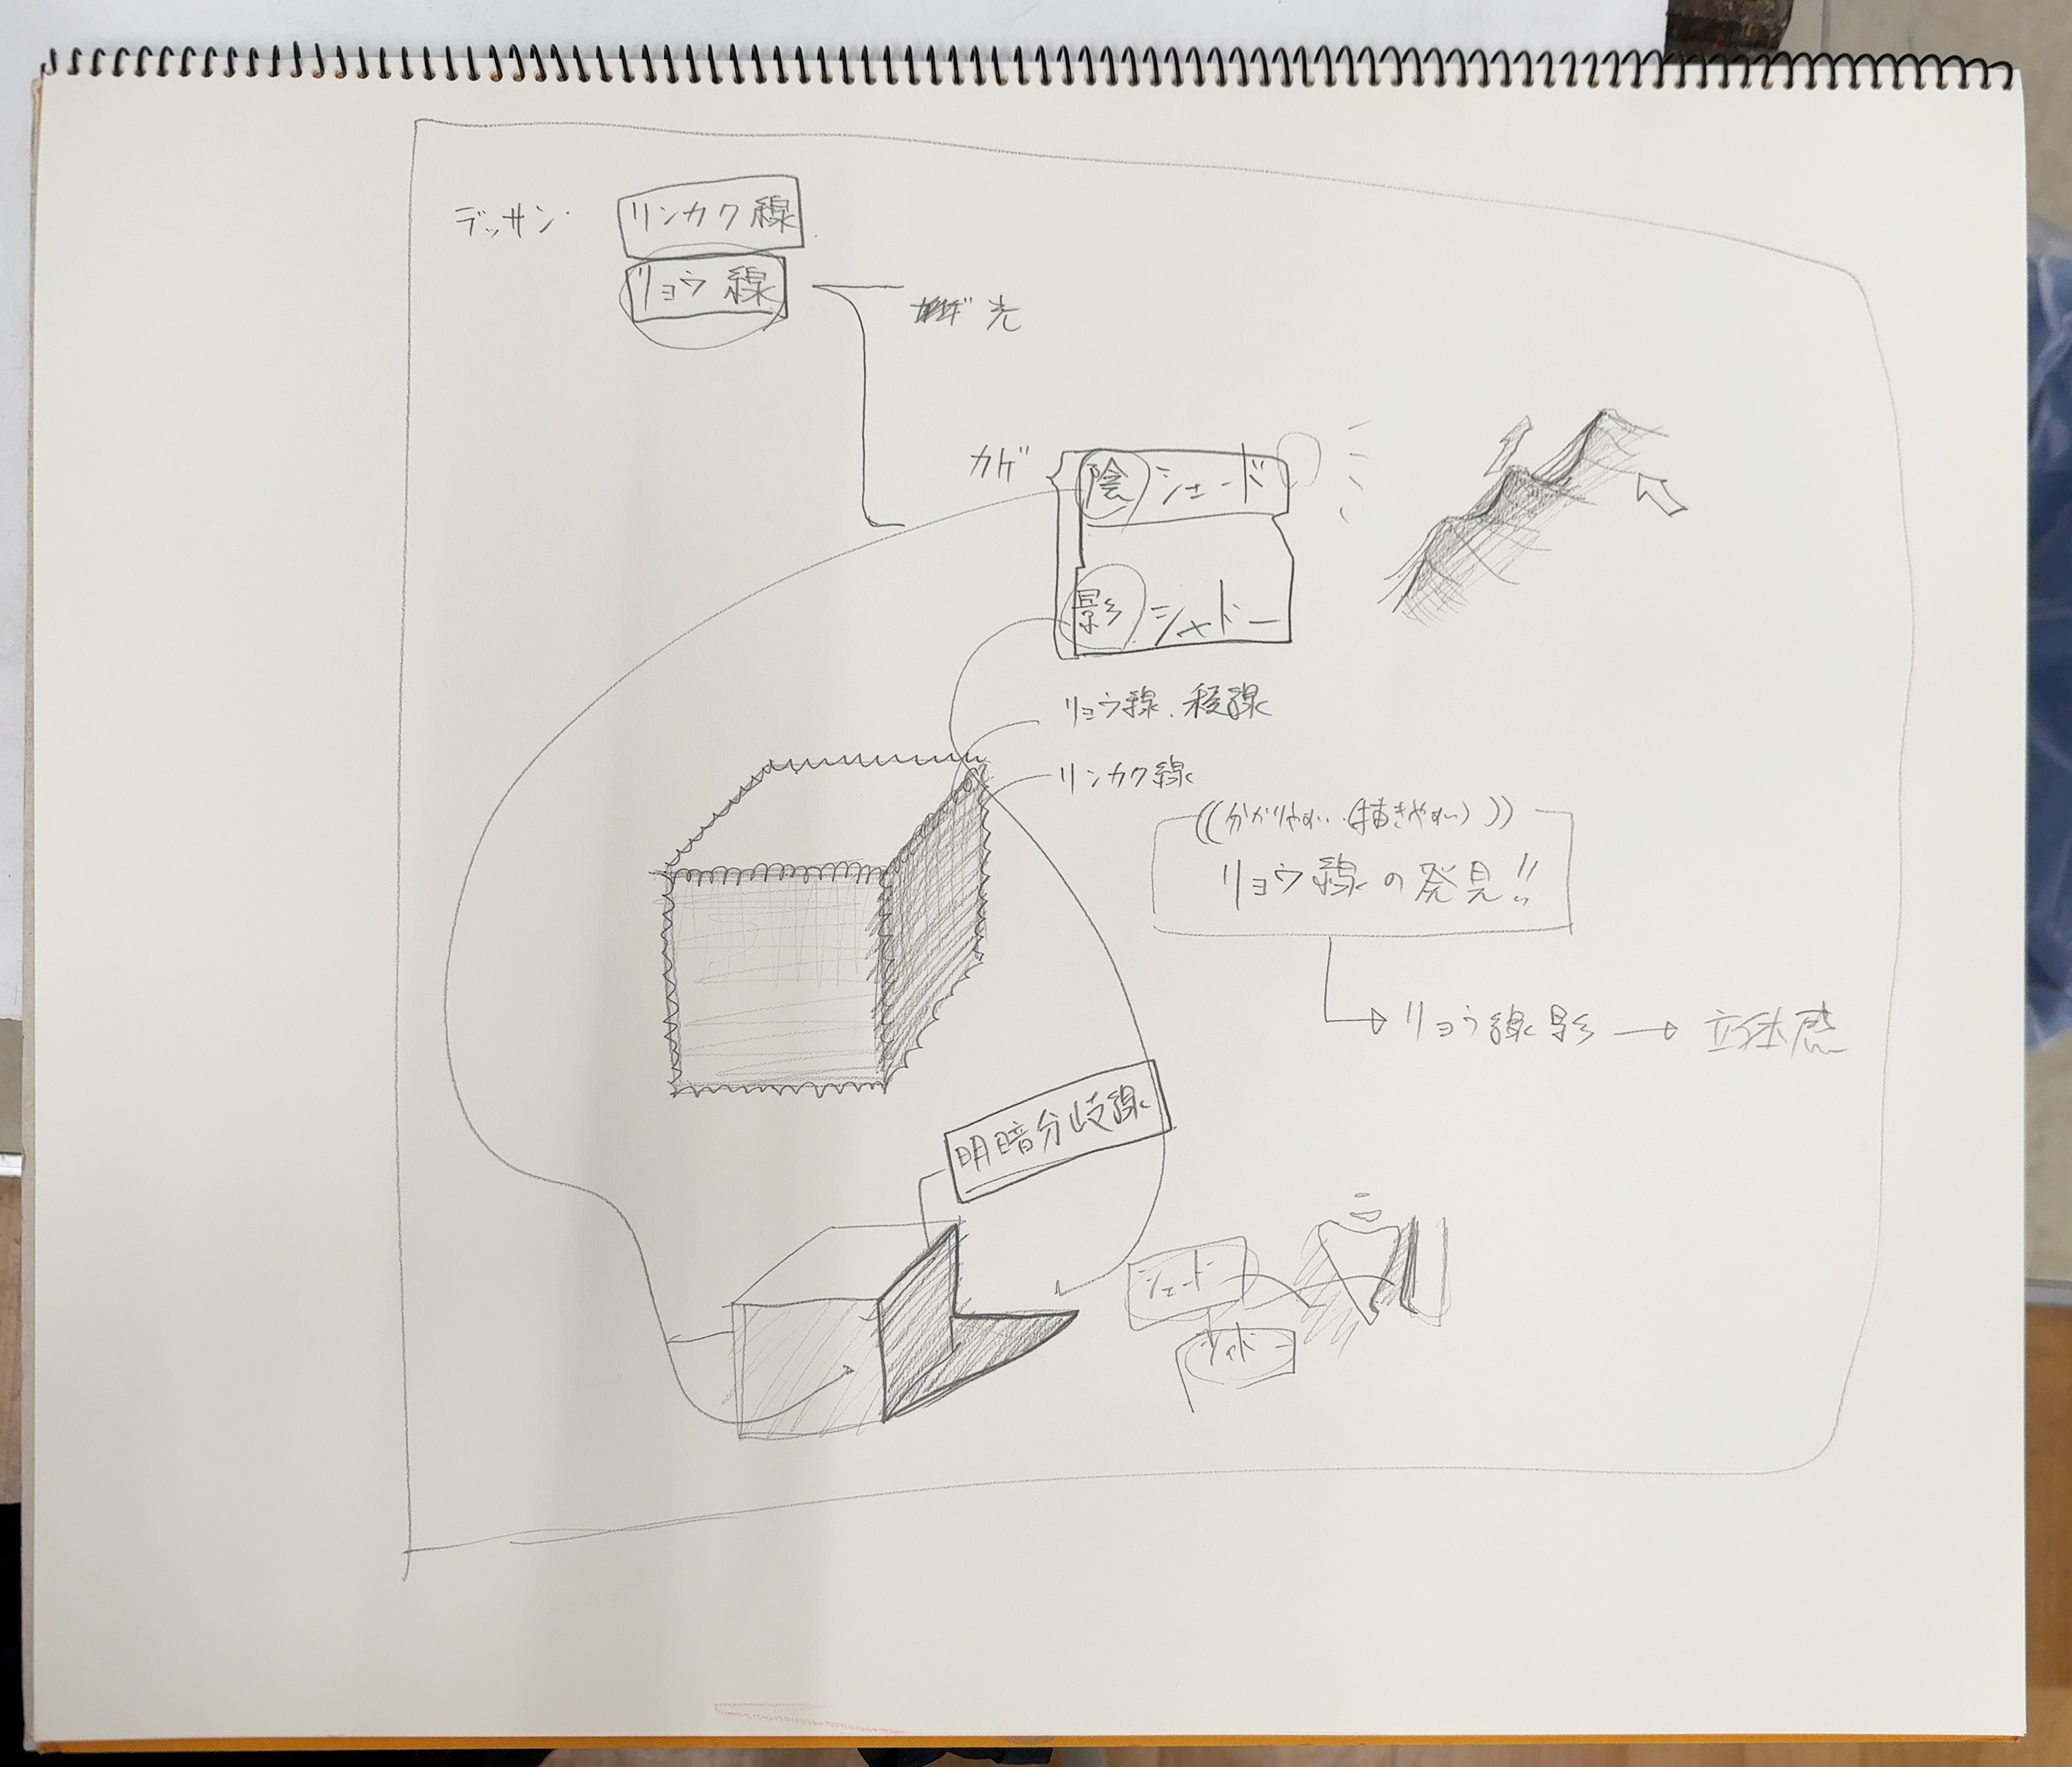 デッサン
リンカク線
リョウ線
光
カゲ
陰 シェード
影 シャドー
リョウ線、稜線
リンカク線
((分かりやすい (描きやすい)))
リョウ線の発見!!
リョウ線影 → 立体感
明暗分岐線
シェード
シャドー